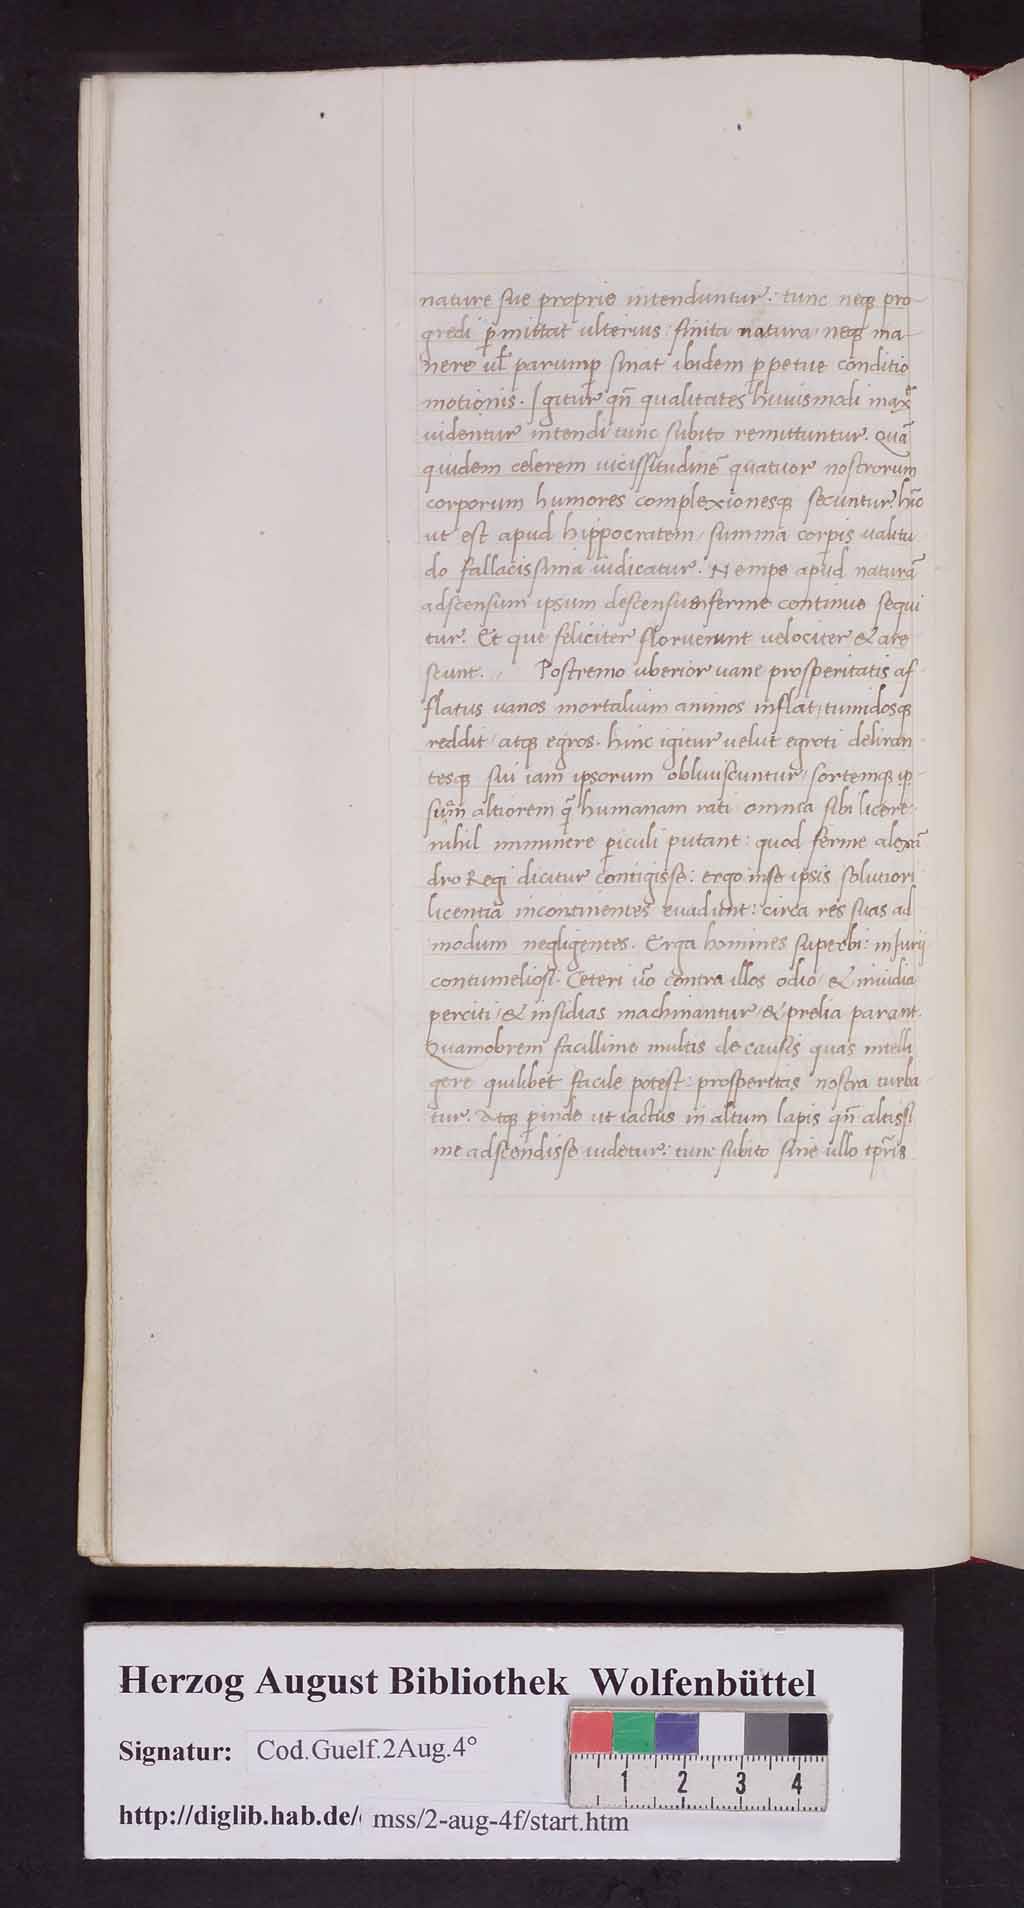 nature sue proprie intenduntur: tunc neqꝫ pro
gredi ꝑmittat ulterius finita natura neqꝫ ma
nere ul̃ parumꝑ sinat ibidem ꝑpetue conditio
motionis. Igitur qñ qualitates huiusmodi maxᵉ
uidentur intendi tunc subito remittuntur. Quã
quidem celerem uicissitudinẽ quatuor nostrorum
corporum humores complexionesqꝫ secuntur. hĩc
ut est apud hippocratem / summa corꝑis ualitu
do fallacissima iudicatur. Nempe apud naturã
adscensum ipsum descensus ferme continuo sequi
tur. Et que feliciter floruerunt uelociter & are
scunt. Postremo uberior uane prosperitatis af
flatus uanos mortalium animos inflat / tumidosqꝫ
reddit / atqꝫ egros. hinc igitur uelut egroti deliran
tesqꝫ sui iam ipsorum obliuiscuntur / sortemqꝫ ip
sum̃ altiorem q̃ humanam rati omnia sibi licere:
nihil imminere ꝑiculi putant: quod ferme alexã
dro Regi dicitur contigisse: ergo in se ipsis solutiori
licentia incontinentes euadunt: circa res suas ad
modum negligentes. Erga homines superbi: iniurij
contumeliosi. Ceteri ũo contra illos odio & inuidia
perciti / & insidias machinantur / & prelia parant.
Quamobrem facillime multis de causis quas intelli
gere quilibet facile potest: prosperitas nostra turba
tur. Atqꝫ ꝑinde ut iactus in altum lapis qñ altissi
me adscendisse uidetur: tunc subito sine ullo tp̃ris
Herzog August Bibliothek Wolfenbüttel
Signatur: Cod.Guelf.2Aug.4°
1 2 3 4
http://diglib.hab.de/ mss/2-aug-4f/start.htm